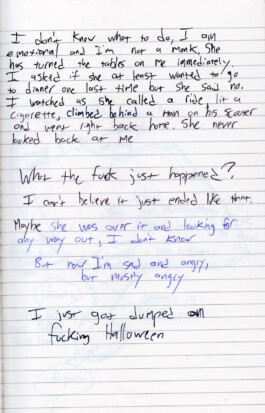 I don't know what to do, I am
emotional and I'm not a monk, She
has turned the tables on me immediately.
I asked if she at least wanted to go
to dinner one last time but she said no.
I watched as she called a ride, lit a
cigarette, climbed behind a man on his scooter
and went right back home. She never
looked back at me
What the fuck just happened?
I can't believe it just ended like that.
Maybe she was over it and looking for
any way out, I don't know
But now I'm sad and angry,
but mostly angry
I just got dumped on
fucking Halloween